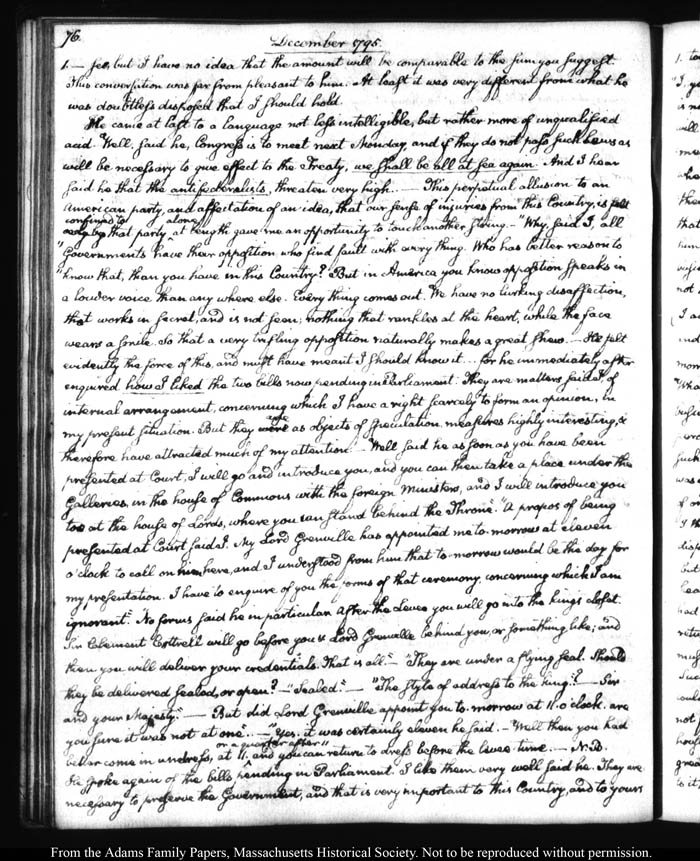 76.
December 1795.
1. — yes, but I have no idea that the amount will be comparable to the sum you suggest.
This conversation was far from pleasant to him. At least it was very different from what he
was doubtless disposed that I should hold.
He came at last to a language not less intelligible, but rather more of unqualified
acid. "Well, said he, Congress is to meet next Monday, and if they do not pass such laws as
will be necessary to give effect to the Treaty, we shall be all at sea again. And I hear
said he that the antifederalists, threaten very high. — This perpetual allusion to an
American party, and affectation of an idea, that our sense of injuries from this Country, is felt
confined to alone,
only by that party at length gave me an opportunity to touch another string. — "Why, said I, all
"Governments have their opposition who find fault with every thing. Who has better reason to
"know that, than you have in this Country? But in America you know opposition speaks in
a louder voice than any where else. Every thing comes out. We have no lurking disaffection,
that works in secret, and is not seen; nothing that rankles at the heart, while the face
wears a smile, so that a very trifling opposition naturally makes a great shew. — He felt
evidently the force of this, and must have meant I should know it... for he immediately after
enquired how I liked the two bills now pending in Parliament. They are matters said I, of
internal arrangement, concerning which I have a right scarcely to form an opinion, in
my present situation. But they were as objects of speculation measures highly interesting, &
therefore have attracted much of my attention. — "Well said he as soon as you have been
presented at Court, I will go and introduce you, and you can then take a place under the
Galleries, in the house of Commons with the foreign Ministers, and I will introduce you
too at the house of Lords, where you can stand behind the Throne." "A propos of being
presented at Court said I. My Lord Grenville has appointed me to-morrow at eleven
o'clock to call on him here, and I understood from him that to-morrow would be the day for
my presentation. I have to enquire of you the forms of that ceremony, concerning which I am
ignorant." No forms said he in particular. After the Levee you will go into the king's closet.
Sir Clement Cottrell will go before you & Lord Grenville behind you, or something like; and
then you will deliver your credentials. That is all." — "They are under a flying seal. Should
they be delivered sealed, or open? — "Sealed." — "The style of address to the king?" — Sir
and your Majesty." — But did Lord Grenville appoint you to-morrow at 11. o'clock. are
you sure it was not at one. — "Yes, it was certainly eleven he said. — "Well then you had
or a quarter after"
better come in undress, at 11. and you can return to dress before the levee time. — N.B.
He spoke again of the bills pending in Parliament. I like them very well said he. They are
necessary to preserve the Government, and that is very important to this Country, and to yours
From the Adams Family Papers, Massachusetts Historical Society. Not to be reproduced without permission.